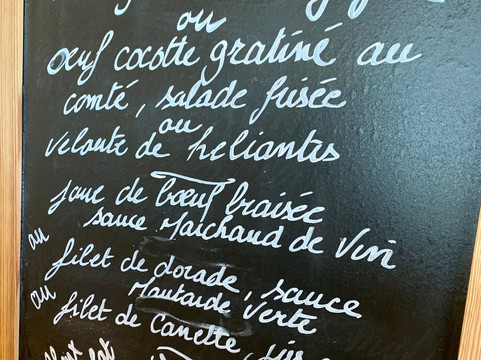 ou
œuf cocotte gratiné au
comté, salade frisée
ou
velouté de héliantis
joue de bœuf braisée
sauce Marchand de Vin
ou
filet de dorade, sauce
Moutarde Verte
ou
filet de Canette, jus